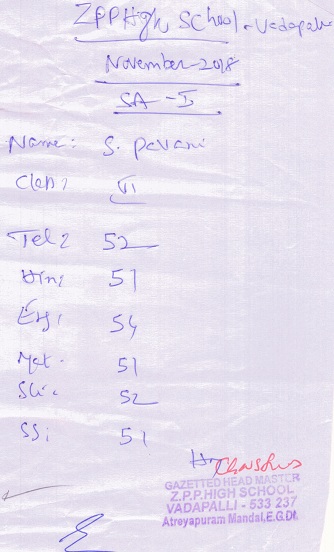 ZPPHigh School - Vadapalli
November-2018
SA-I
Name: S. Pavani
Class: VI
Tel: 52
Hin: 51
Eng: 54
Mat. 51
Sci: 52
SS: 51
GAZETTED HEAD MASTER
Z.P.P.HIGH SCHOOL
VADAPALLI - 533 237
Atreyapuram Mandal,E.G.Dt.